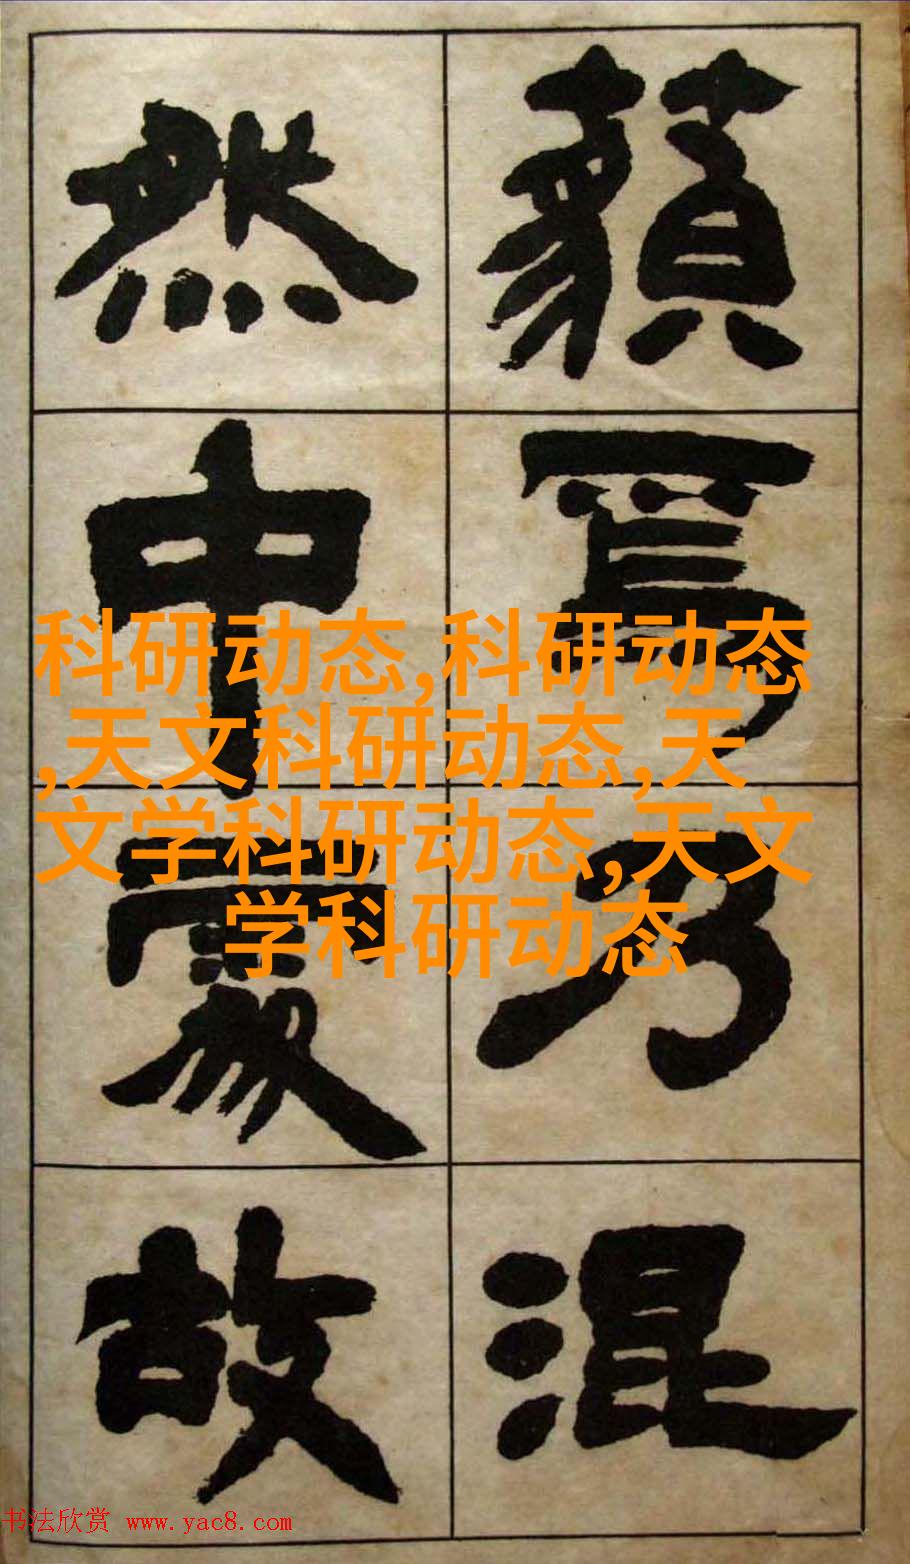 藐焉乃混
然中處故
科研动态,科研动态
,天文科研动态,天
文学科研动态,天文
学科研动态
书法欣赏 www.yac8.com